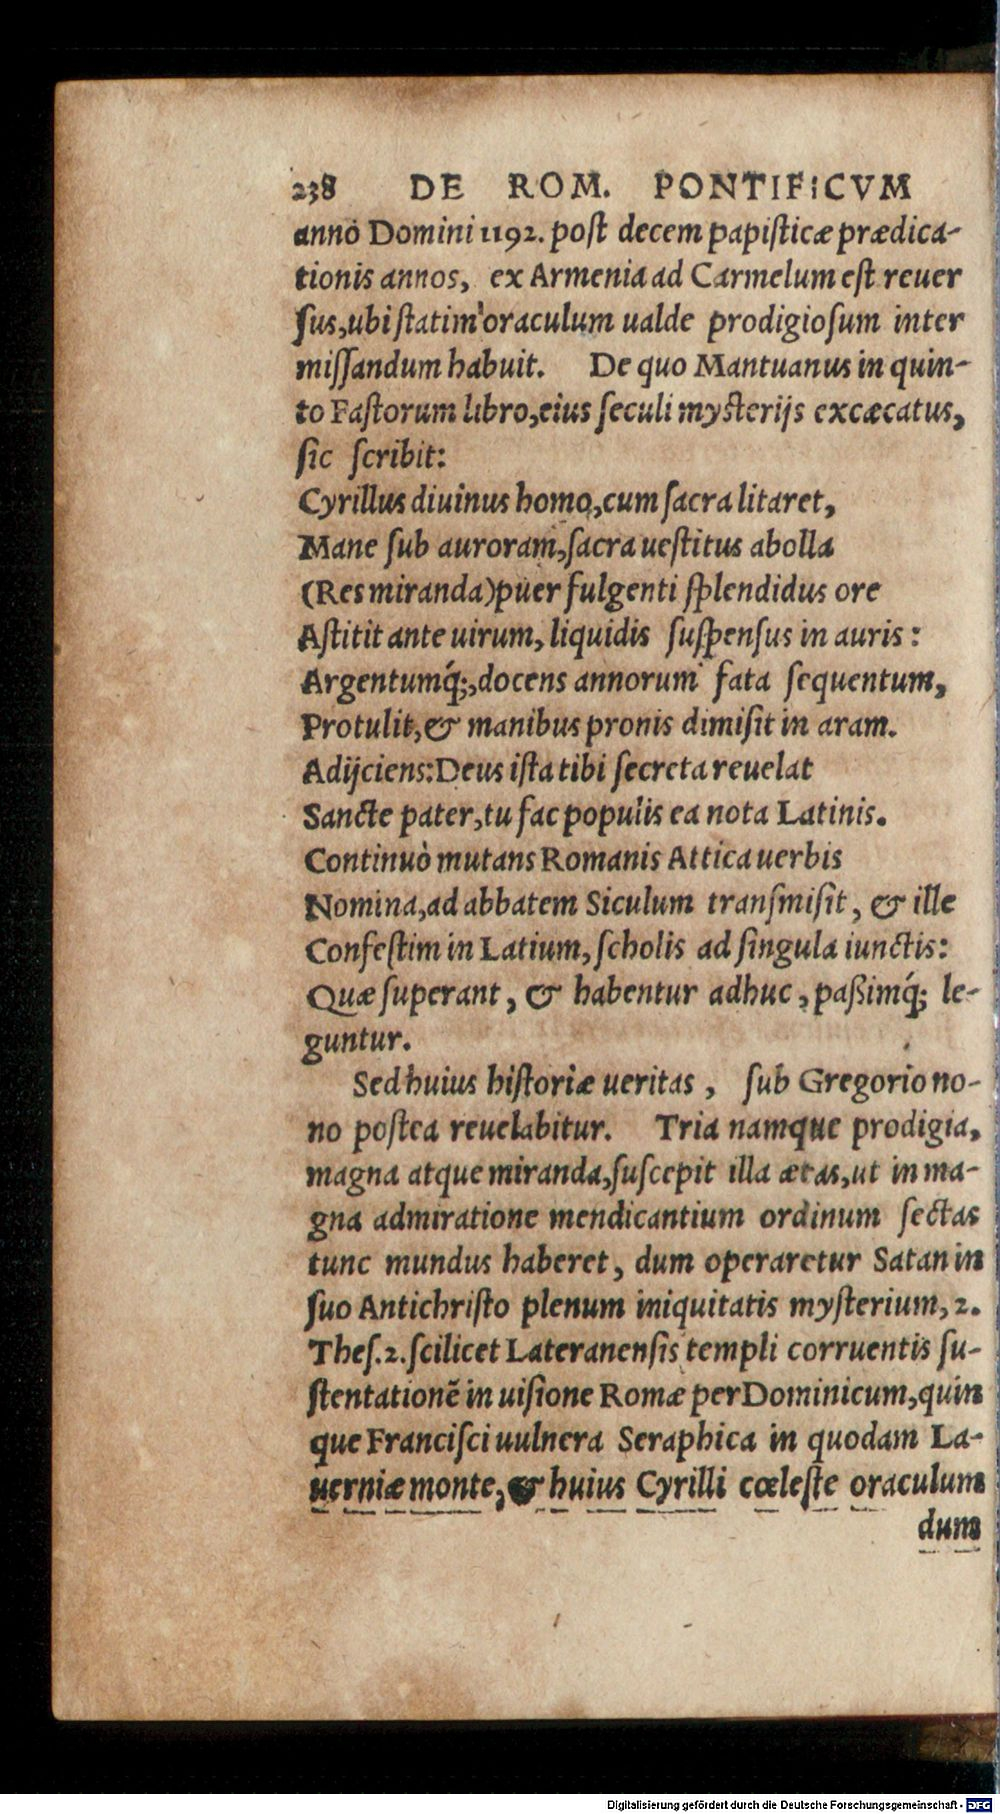 238 DE ROM. PONTIFICVM
anno Domini 1192. post decem papisticæ prædica-
tionis annos, ex Armenia ad Carmelum est reuer
sus, ubi statim oraculum ualde prodigiosum inter
missandum habuit. De quo Mantuanus in quin-
to Fastorum libro, eius seculi mysterijs excæcatus,
sic scribit:
Cyrillus diuinus homo, cum sacra litaret,
Mane sub auroram, sacra uestitus abolla
(Res miranda) puer fulgenti splendidus ore
Astitit ante uirum, liquidis suspensus in auris:
Argentumq́;, docens annorum fata sequentum,
Protulit, & manibus pronis dimisit in aram.
Adijciens: Deus ista tibi secreta reuelat
Sancte pater, tu fac populis ea nota Latinis.
Continuò mutans Romanis Attica uerbis
Nomina, ad abbatem Siculum transmisit, & ille
Confestim in Latium, scholis ad singula iunctis:
Quæ superant, & habentur adhuc, paßimq́; le-
guntur.
Sed huius historiæ ueritas, sub Gregorio no-
no postea reuelabitur. Tria namque prodigia,
magna atque miranda, suscepit illa ætas, ut in ma-
gna admiratione mendicantium ordinum sectas
tunc mundus haberet, dum operaretur Satan in
suo Antichristo plenum iniquitatis mysterium, 2.
Thes. 2. scilicet Lateranensis templi corruentis su-
stentationẽ in uisione Romæ per Dominicum, quin
que Francisci uulnera Seraphica in quodam La-
uerniæ monte, & huius Cyrilli cœleste oraculum
dum
Digitalisierung gefördert durch die Deutsche Forschungsgemeinschaft - DFG